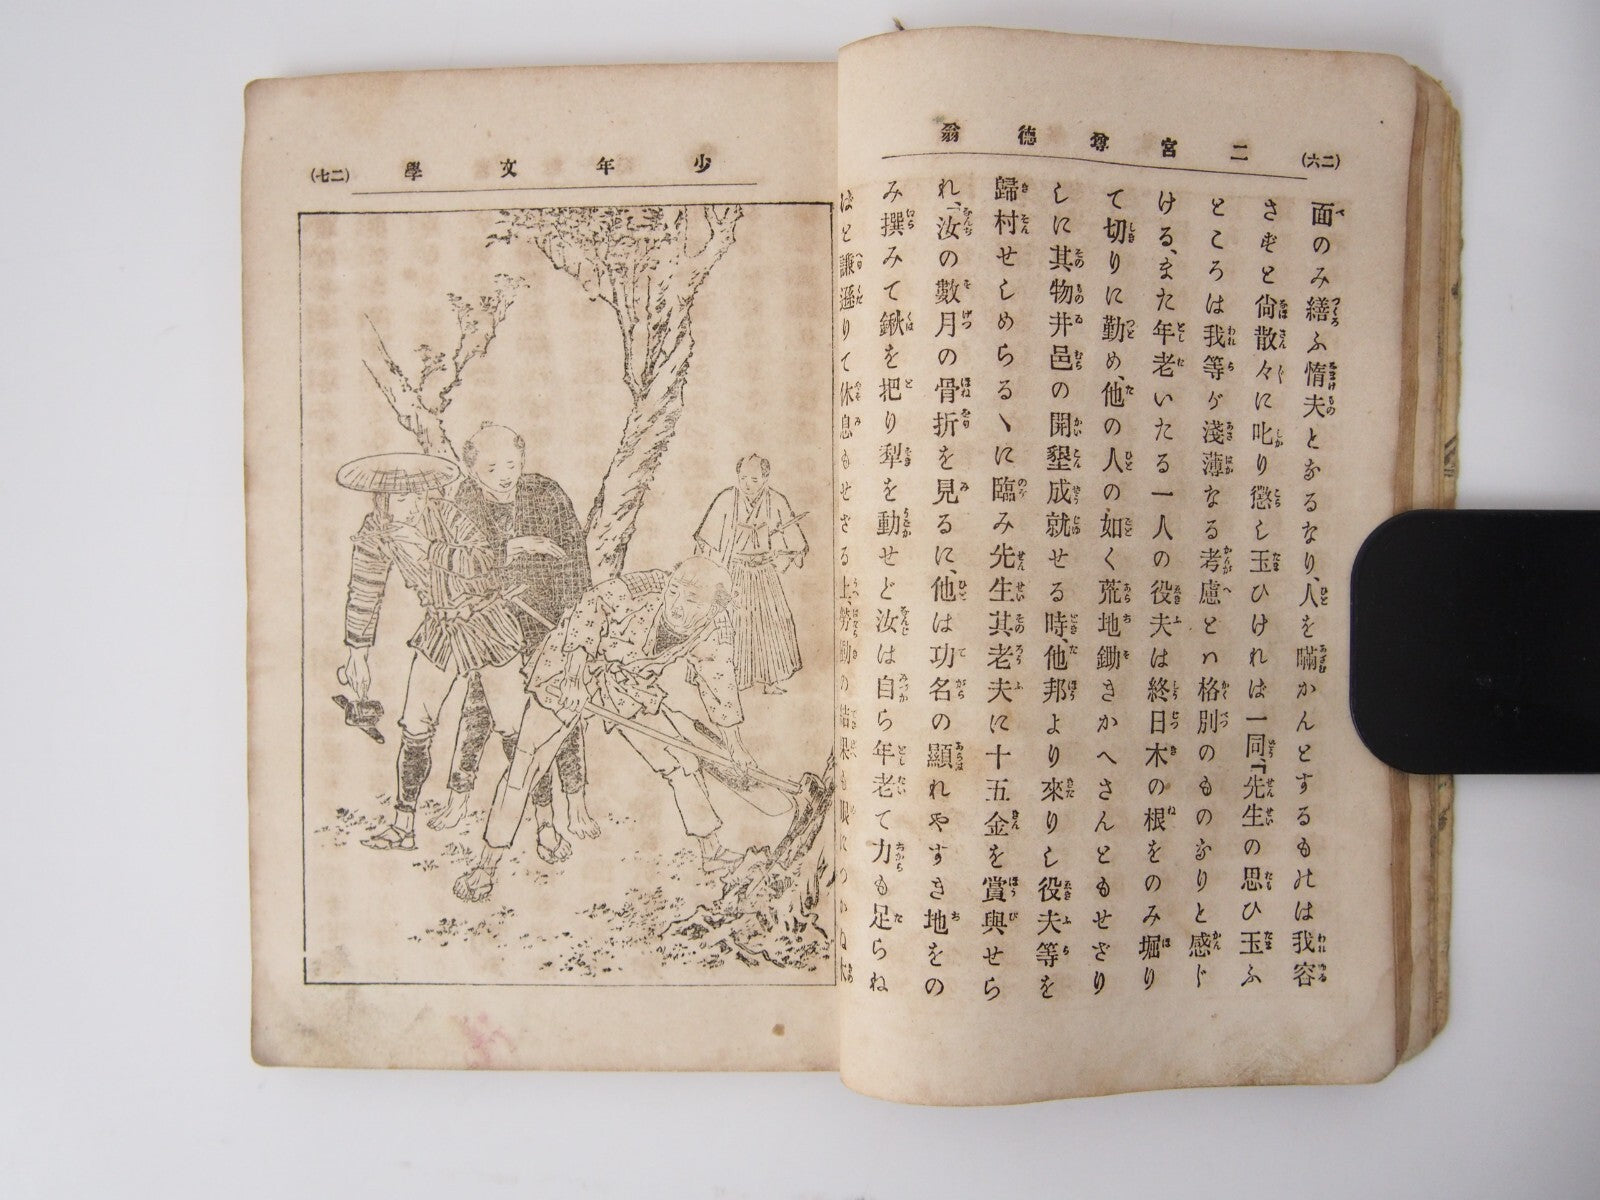 (二六)
二宮尊德翁
面のみ繕ふ惰夫となるなり、人を瞞かんとするものは我容
さずと尙散々に叱り懲し玉ひければ一同、「先生の思ひ玉ふ
ところは我等が淺薄なる考慮とハ格別のものなりと感じ
ける、また年老いたる一人の役夫は終日木の根をのみ堀り
て切りに勤め、他の人の如く荒地鋤きかへさんともせざり
しに其物井邑の開墾成就せる時、他邦より來りし役夫等を
歸村せしめらるゝに臨み先生其老夫に十五金を賞與せら
れ、汝の數月の骨折を見るに、他は功名の顯れやすき地をの
み撰みて鍬を把り犁を動せど汝は自ら年老て力も足らね
ばと謙遜りて休息もせざる上、勞働の結果も眼につかね木
少年文學
(二七)